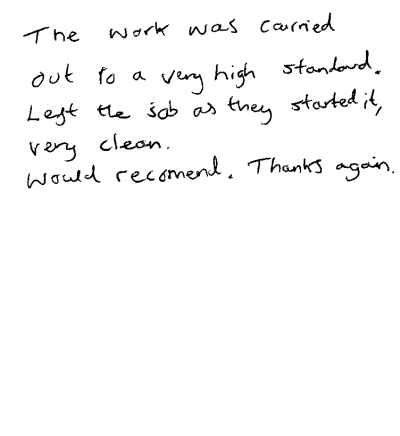 The work was carried
out to a very high standard.
Left the job as they started it,
very clean.
Would recomend. Thanks again.